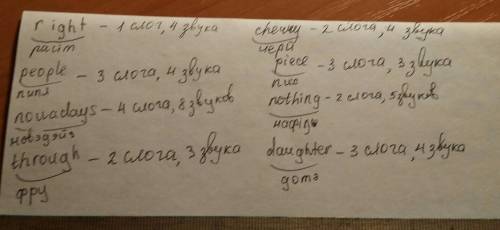 right - 1 слог, 4 звука
райт
people - 3 слога, 4 звука
пипл
nowadays - 4 слога, 8 звуков
новэдэйз
through - 2 слога, 3 звука
фру
cherry - 2 слога, 4 звука
чери
piece - 3 слога, 3 звука
пис
nothing - 2 слога, 5 звуков
daughter - 3 слога, 4 звука
дотэ